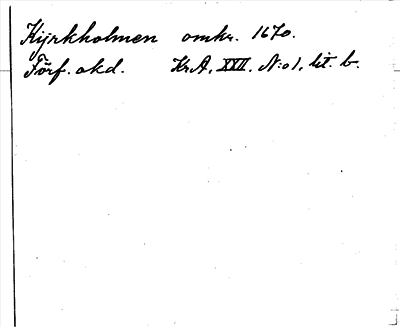 Kyrkholmen omkr. 1670.
Förf. okd. KrA, XXII. N:o 1, lit. b.